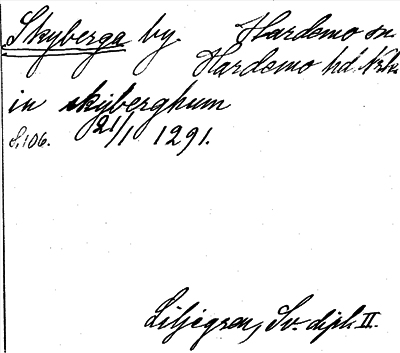 Skyberga by. Hardemo sn.
Hardemo hd. Nrke.
in skyberghum
S. 106. 21/1 1291.
Liljegren, Sv. dipl. II.